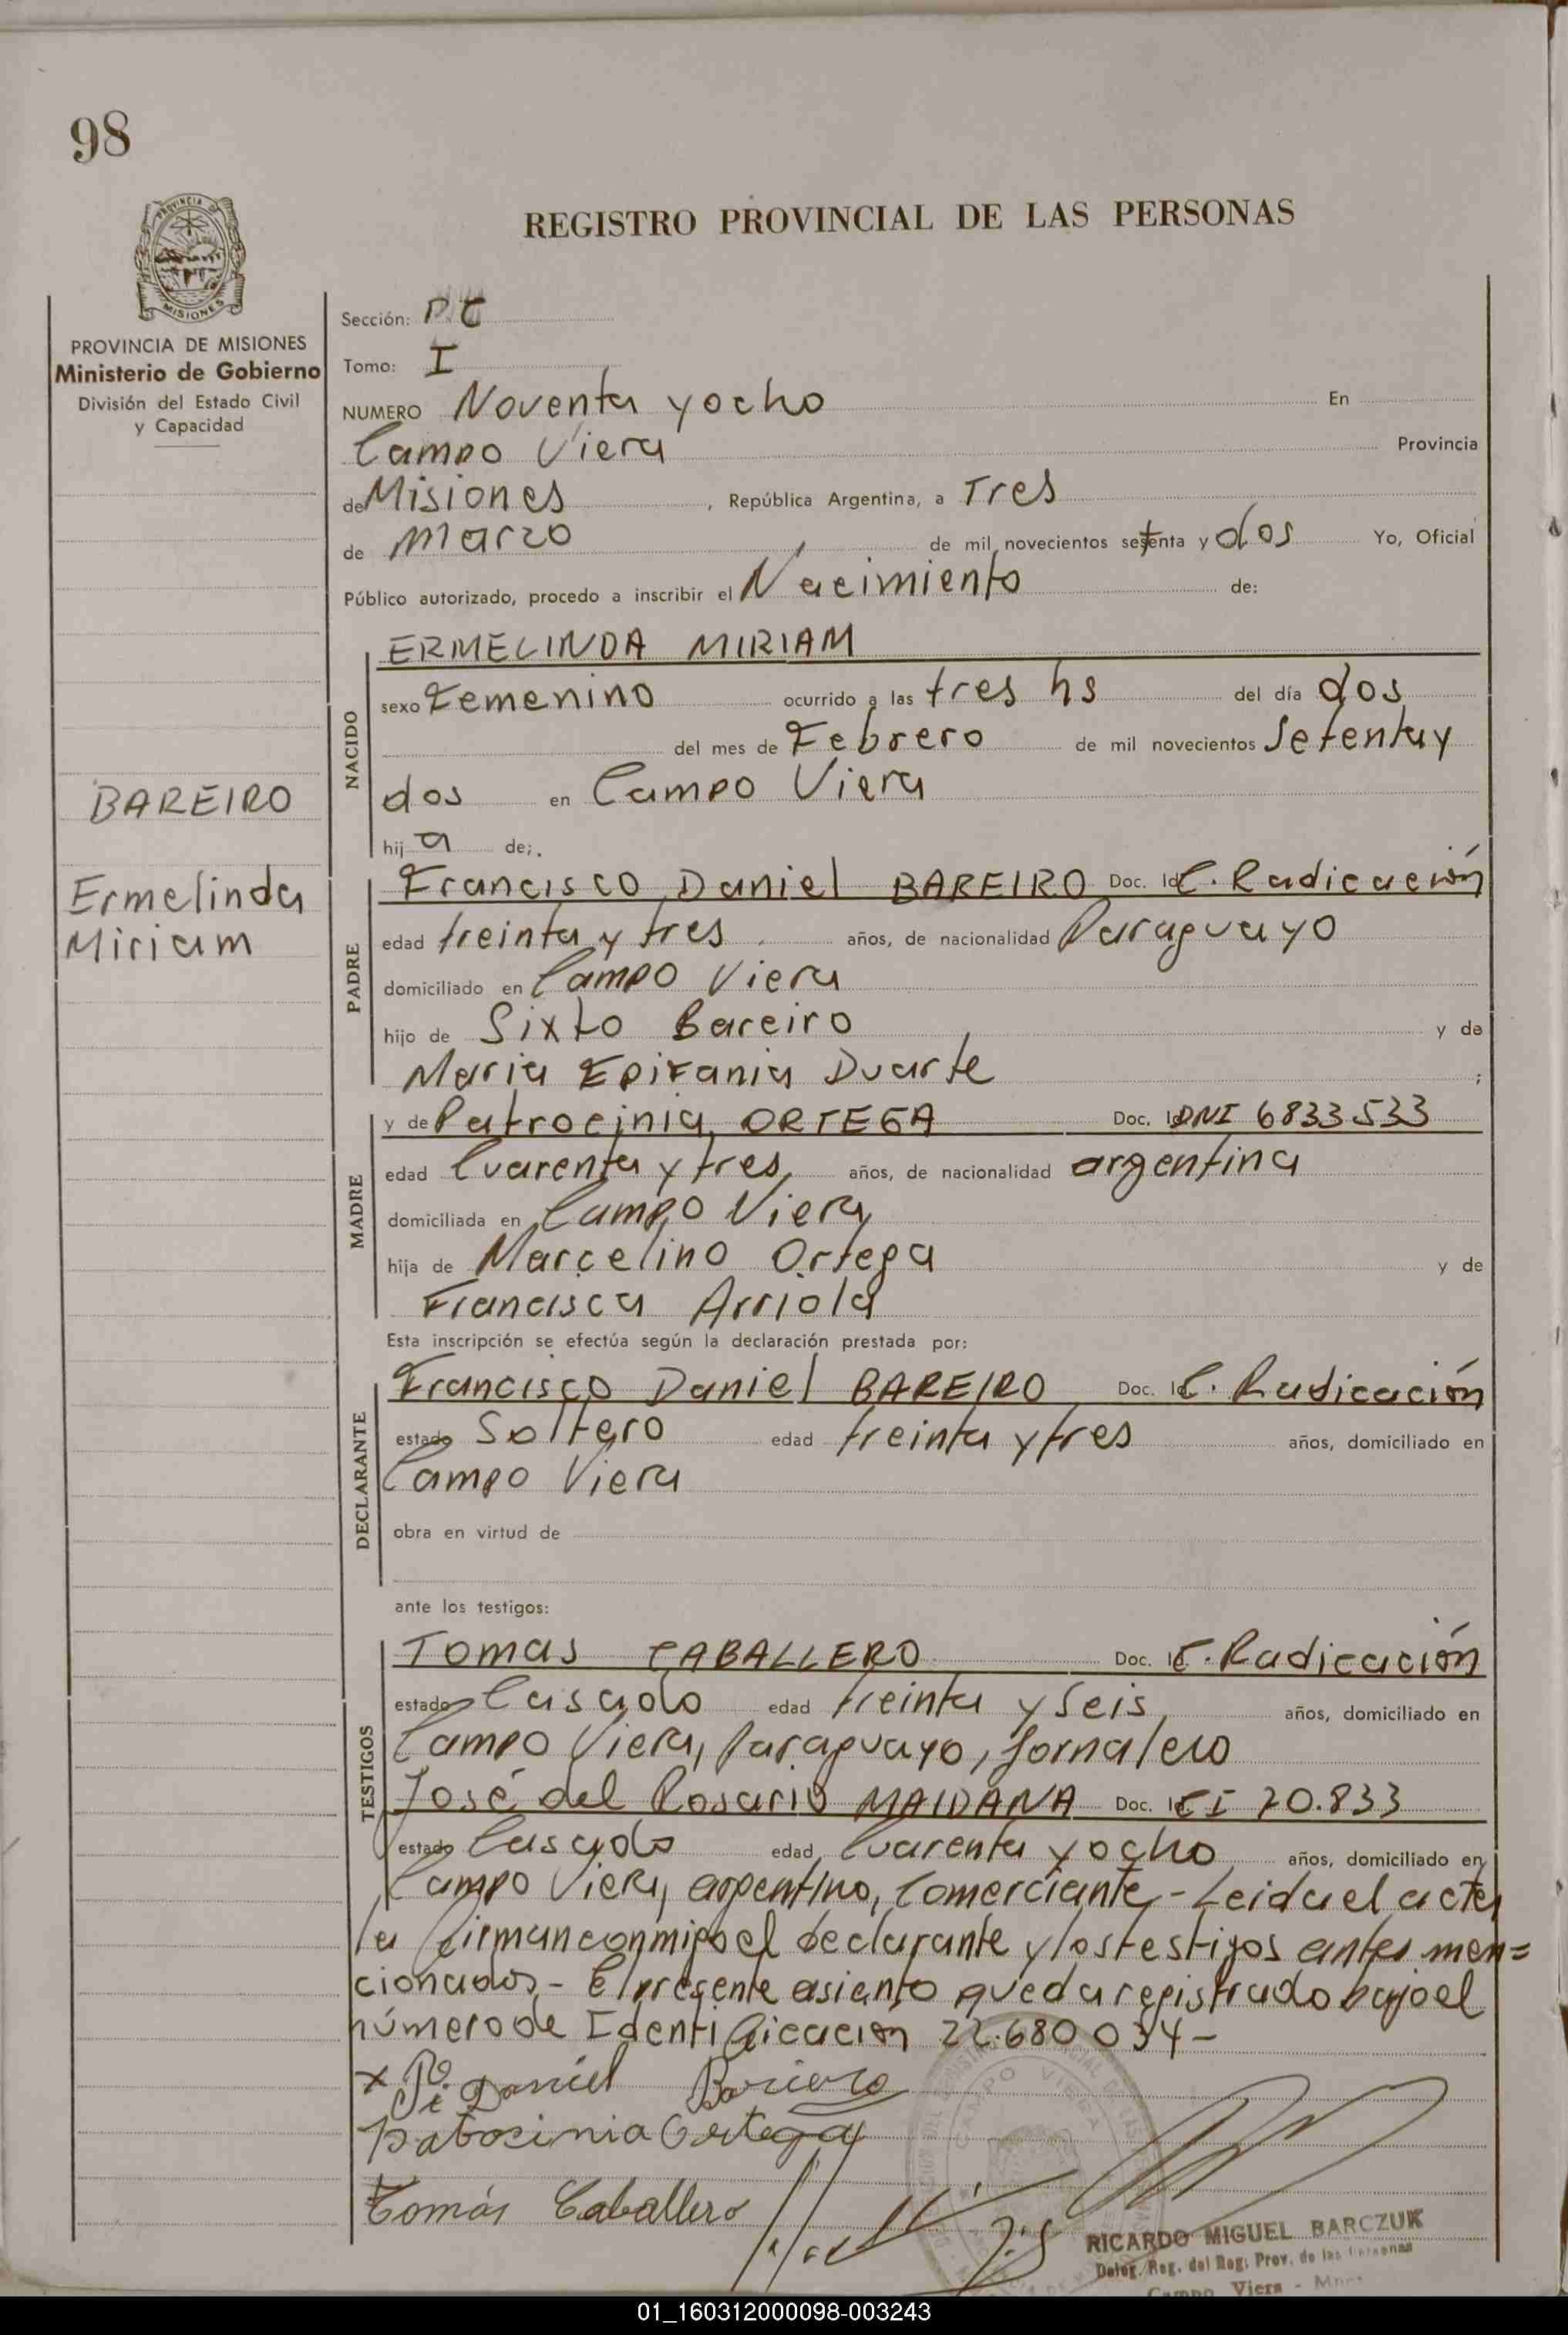 98
REGISTRO PROVINCIAL DE LAS PERSONAS
PROVINCIA DE
MISIONES
PROVINCIA DE MISIONES
Ministerio de Gobierno
División del Estado Civil
y Capacidad
BAREIRO
Ermelinda
Miriam
Sección:
Tomo: I
NUMERO Noventa y ocho En
Campo Viera Provincia
de Misiones, República Argentina, a Tres
de marzo de mil novecientos setenta y dos Yo, Oficial
Público autorizado, procedo a inscribir el Nacimiento de:
NACIDO
ERMELINDA MIRIAM
sexo Femenino ocurrido a las tres hs del día dos
del mes de Febrero de mil novecientos Setenta y
dos en Campo Viera
hija de:
PADRE
Francisco Daniel BAREIRO Doc. Id C. Radicación
edad treinta y tres años, de nacionalidad Paraguayo
domiciliado en Campo Viera
hijo de Sixto Bareiro y de
Maria Epifania Duarte ;
MADRE
y de Patrocinia ORTEGA Doc. Id DNI 6833533
edad Cuarenta y tres años, de nacionalidad argentina
domiciliada en Campo Viera
hija de Marcelino Ortega y de
Francisca Arriola
Esta inscripción se efectúa según la declaración prestada por:
DECLARANTE
Francisco Daniel BAREIRO Doc. Id C. Radicación
estado Soltero edad treinta y tres años, domiciliado en
Campo Viera
obra en virtud de
ante los testigos:
TESTIGOS
Tomas CABALLERO Doc. Id C. Radicación
estado Casado edad treinta y Seis años, domiciliado en
Campo Viera, Paraguayo, Jornalero
José del Rosario MAIDANA Doc. Id CI 70.833
estado Casado edad Cuarenta y ocho años, domiciliado en
Campo Viera, argentino, Comerciante - Leida el acta
la firman conmigo el declarante y los testigos antes men=
cionados - El presente asiento queda registrado bajo el
número de Identificación 22.680034-
x Daniel Bareiro
Patrosinia Ortega
Tomás Caballero
CAMPO VIERA
RICARDO MIGUEL BARCZUK
Deleg. Reg. del Reg. Prov. de las Personas
Campo Viera -
01_160312000098-003243